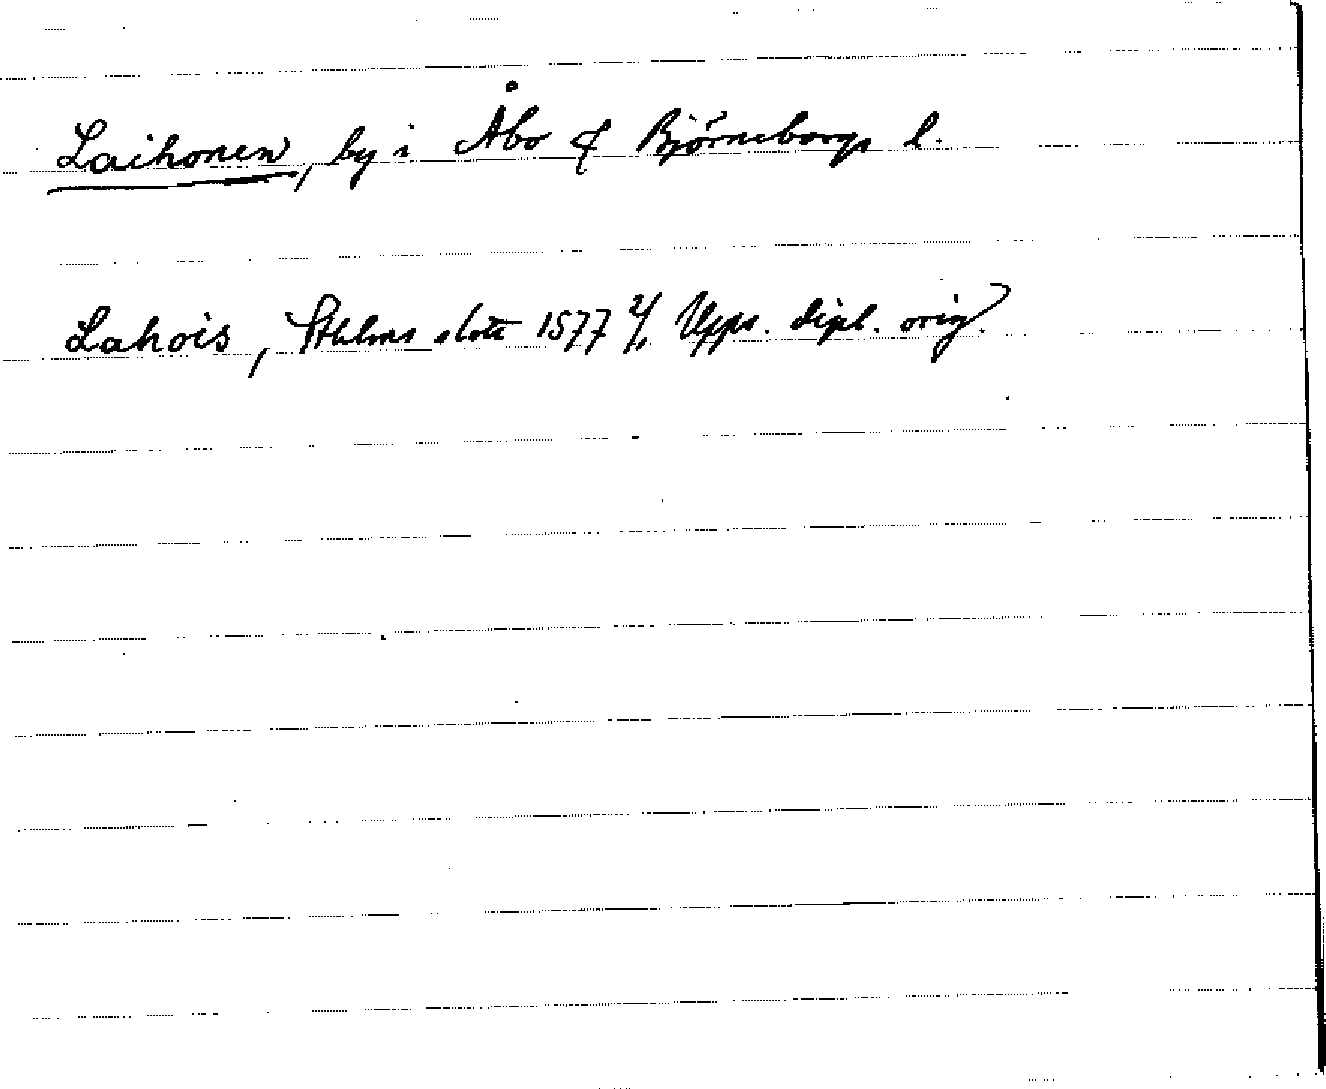 Laihonen, by i Åbo & Björneborgs l.
Lahois, Sthlms slott 1577 2/1 Upps. dipl. orig.